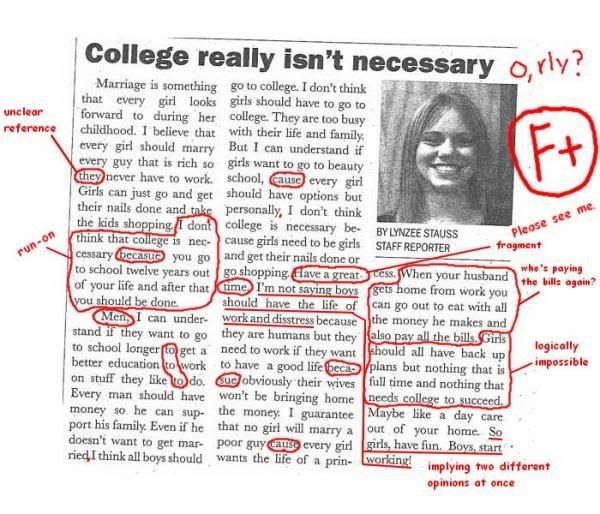 College really isn't necessary
o, rly?
F+
Please see me.
Marriage is something
that every girl looks
forward to during her
childhood. I believe that
every girl should marry
every guy that is rich so
they never have to work.
Girls can just go and get
their nails done and take
the kids shopping. I dont
think that college is nec-
cessary becasue you go
to school twelve years out
of your life and after that
you should be done.
Men, I can under-
stand if they want to go
to school longer to get a
better education to work
on stuff they like to do.
Every man should have
money so he can sup-
port his family. Even if he
doesn't want to get mar-
ried,I think all boys should
go to college. I don't think
girls should have to go to
college. They are too busy
with their life and family.
But I can understand if
girls want to go to beauty
school, cause every girl
should have options but
personally, I don't think
college is necessary be-
cause girls need to be girls
and get their nails done or
go shopping. Have a great
time. I'm not saying boys
should have the life of
work and disstress because
they are humans but they
need to work if they want
to have a good life beca-
sue obviously their wives
won't be bringing home
the money. I guarantee
that no girl will marry a
poor guy cause every girl
wants the life of a prin-
BY LYNZEE STAUSS
STAFF REPORTER
cess. When your husband
gets home from work you
can go out to eat with all
the money he makes and
also pay all the bills. Girls
should all have back up
plans but nothing that is
full time and nothing that
needs college to succeed.
Maybe like a day care
out of your home. So
girls, have fun. Boys, start
working!
unclear
reference
run-on
fragment
who's paying
the bills again?
logically
impossible
implying two different
opinions at once